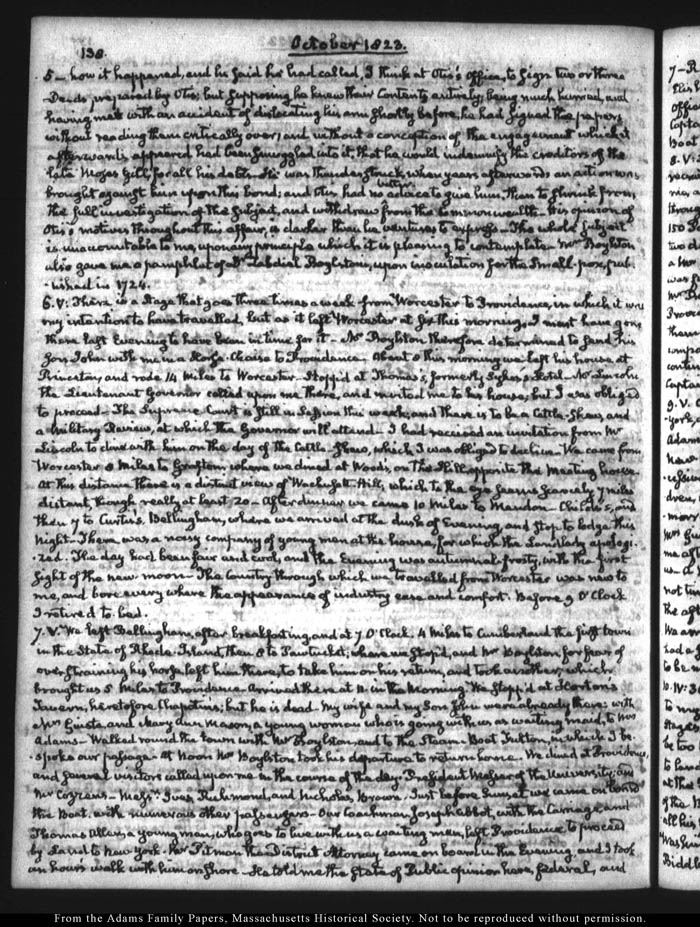 138.
October 1823.
5 — how it happened, and he said he had called, I think at Otis's office, to sign two or three
Deeds, prepared by Otis; but supposing he knew their Contents entirely, being much hurried, and
having met with an accident of dislocating his arm shortly before, he had signed the papers
without reading them critically over, and without a conception of the engagement which it
afterwards appeared had been smuggled into it, that he would indemnify the creditors of the
late Moses Gill, for all his debts. He was thunderstruck, when years afterwards an action was
brought against him upon this bond; and Otis had no advice to give him, than to shrink from
the full investigation of the subject, and withdraw from the Commonwealth. His opinion of
Otis's motives throughout this affair, is darker than he ventures to express. The whole subject
is unaccountable to me, upon any principle which it is pleasing to contemplate. Mr Boylston
also gave me a pamphlet of Dr Zabdiel Boylston, upon inoculation for the Small-pox, pub-
-lished in 1724.
6. V: There is a Stage that goes three times a week from Worcester to Providence, in which it was
my intention to have travelled, but as it left Worcester at six this morning, I must have gone
there last Evening to have been in time for it — Mr Boylston therefore determined to send his
Son John with me in a Horse-Chaise to Providence. About 8 this morning we left his house at
Princeton, and rode 14 miles to Worcester. Stopp'd at Thomas's, formerly Syke's Hotel. Mr Lincoln
the Lieutenant Governor called upon me there, and invited me to his house; but I was obliged
to proceed. The Supreme Court is still in Session this week, and there is to be a Cattle-Show, and
a Military Review, at which the Governor will attend. I had received an invitation from Mr
Lincoln to dine with him on the day of the Cattle-Show, which I was obliged to decline. We came from
Worcester 8 Miles to Grafton, where we dined at Woods, on the Hill opposite the Meeting house.
At this distance there is a distinct view of Wachusett Hill, which to the eye seems scarcely 7 miles
distant, though really at least 20 — After dinner we came 10 Miles to Mendon — Childs's, and
then 7 to Curtis's, Bellingham, where we arrived at the dusk of Evening, and stop to lodge this
Night. There was a noisy company of young men at the house, for which the Landlady apologi-
-zed. The day had been fair and cool, and the Evening was autumnal-frosty, with the first
sight of the new moon. The Country through which we travelled from Worcester was new to
me, and bore every where the appearance of industry ease and comfort. Before 9 O'Clock
I retired to bed.
7. V. We left Bellingham, after breakfasting, and at 7 O'Clock. 4 Miles to Cumberland the first town
in the State of Rhode-Island, then 8 to Pawtucket, where we stop'd, and Mr Boylston for fear of
overstraining his horse left him there, to take him on his return, and took another, which
brought us 5 Miles to Providence. Arrived there at 11 in the Morning. We stopp'd at Horton's
Tavern, heretofore Chapotin's; but he is dead. My wife and my Son John were already there: with
Mrs and Mary Ann Mason, a young woman who is going with us as waiting maid, to Mrs
Adams — Walked round the town with Mr Boylston, and to the Steam-Boat Fulton, in which I be-
-spoke our passage. At Noon Mr Boylston took his departure to return home. We dined at Providence,
and several visitors called upon me in the course of the day. President Messer of the University, and
Mr Cozzens. Messrs. Ives, Richmond, and Nicholas Brown. Just before Sunset we came on board
the Boat, with numerous other passengers. Our Coachman Joseph Abbot, with the Carriage, and
Thomas Allen, a young man, who goes to live with us as waiting man, left Providence to proceed
by Land to New-York. Mr Pitman the District Attorney came on board in the Evening, and I took
an hour's walk with him on shore. He told me the State of Public opinion here, federal, and
From the Adams Family Papers, Massachusetts Historical Society. Not to be reproduced without permission.